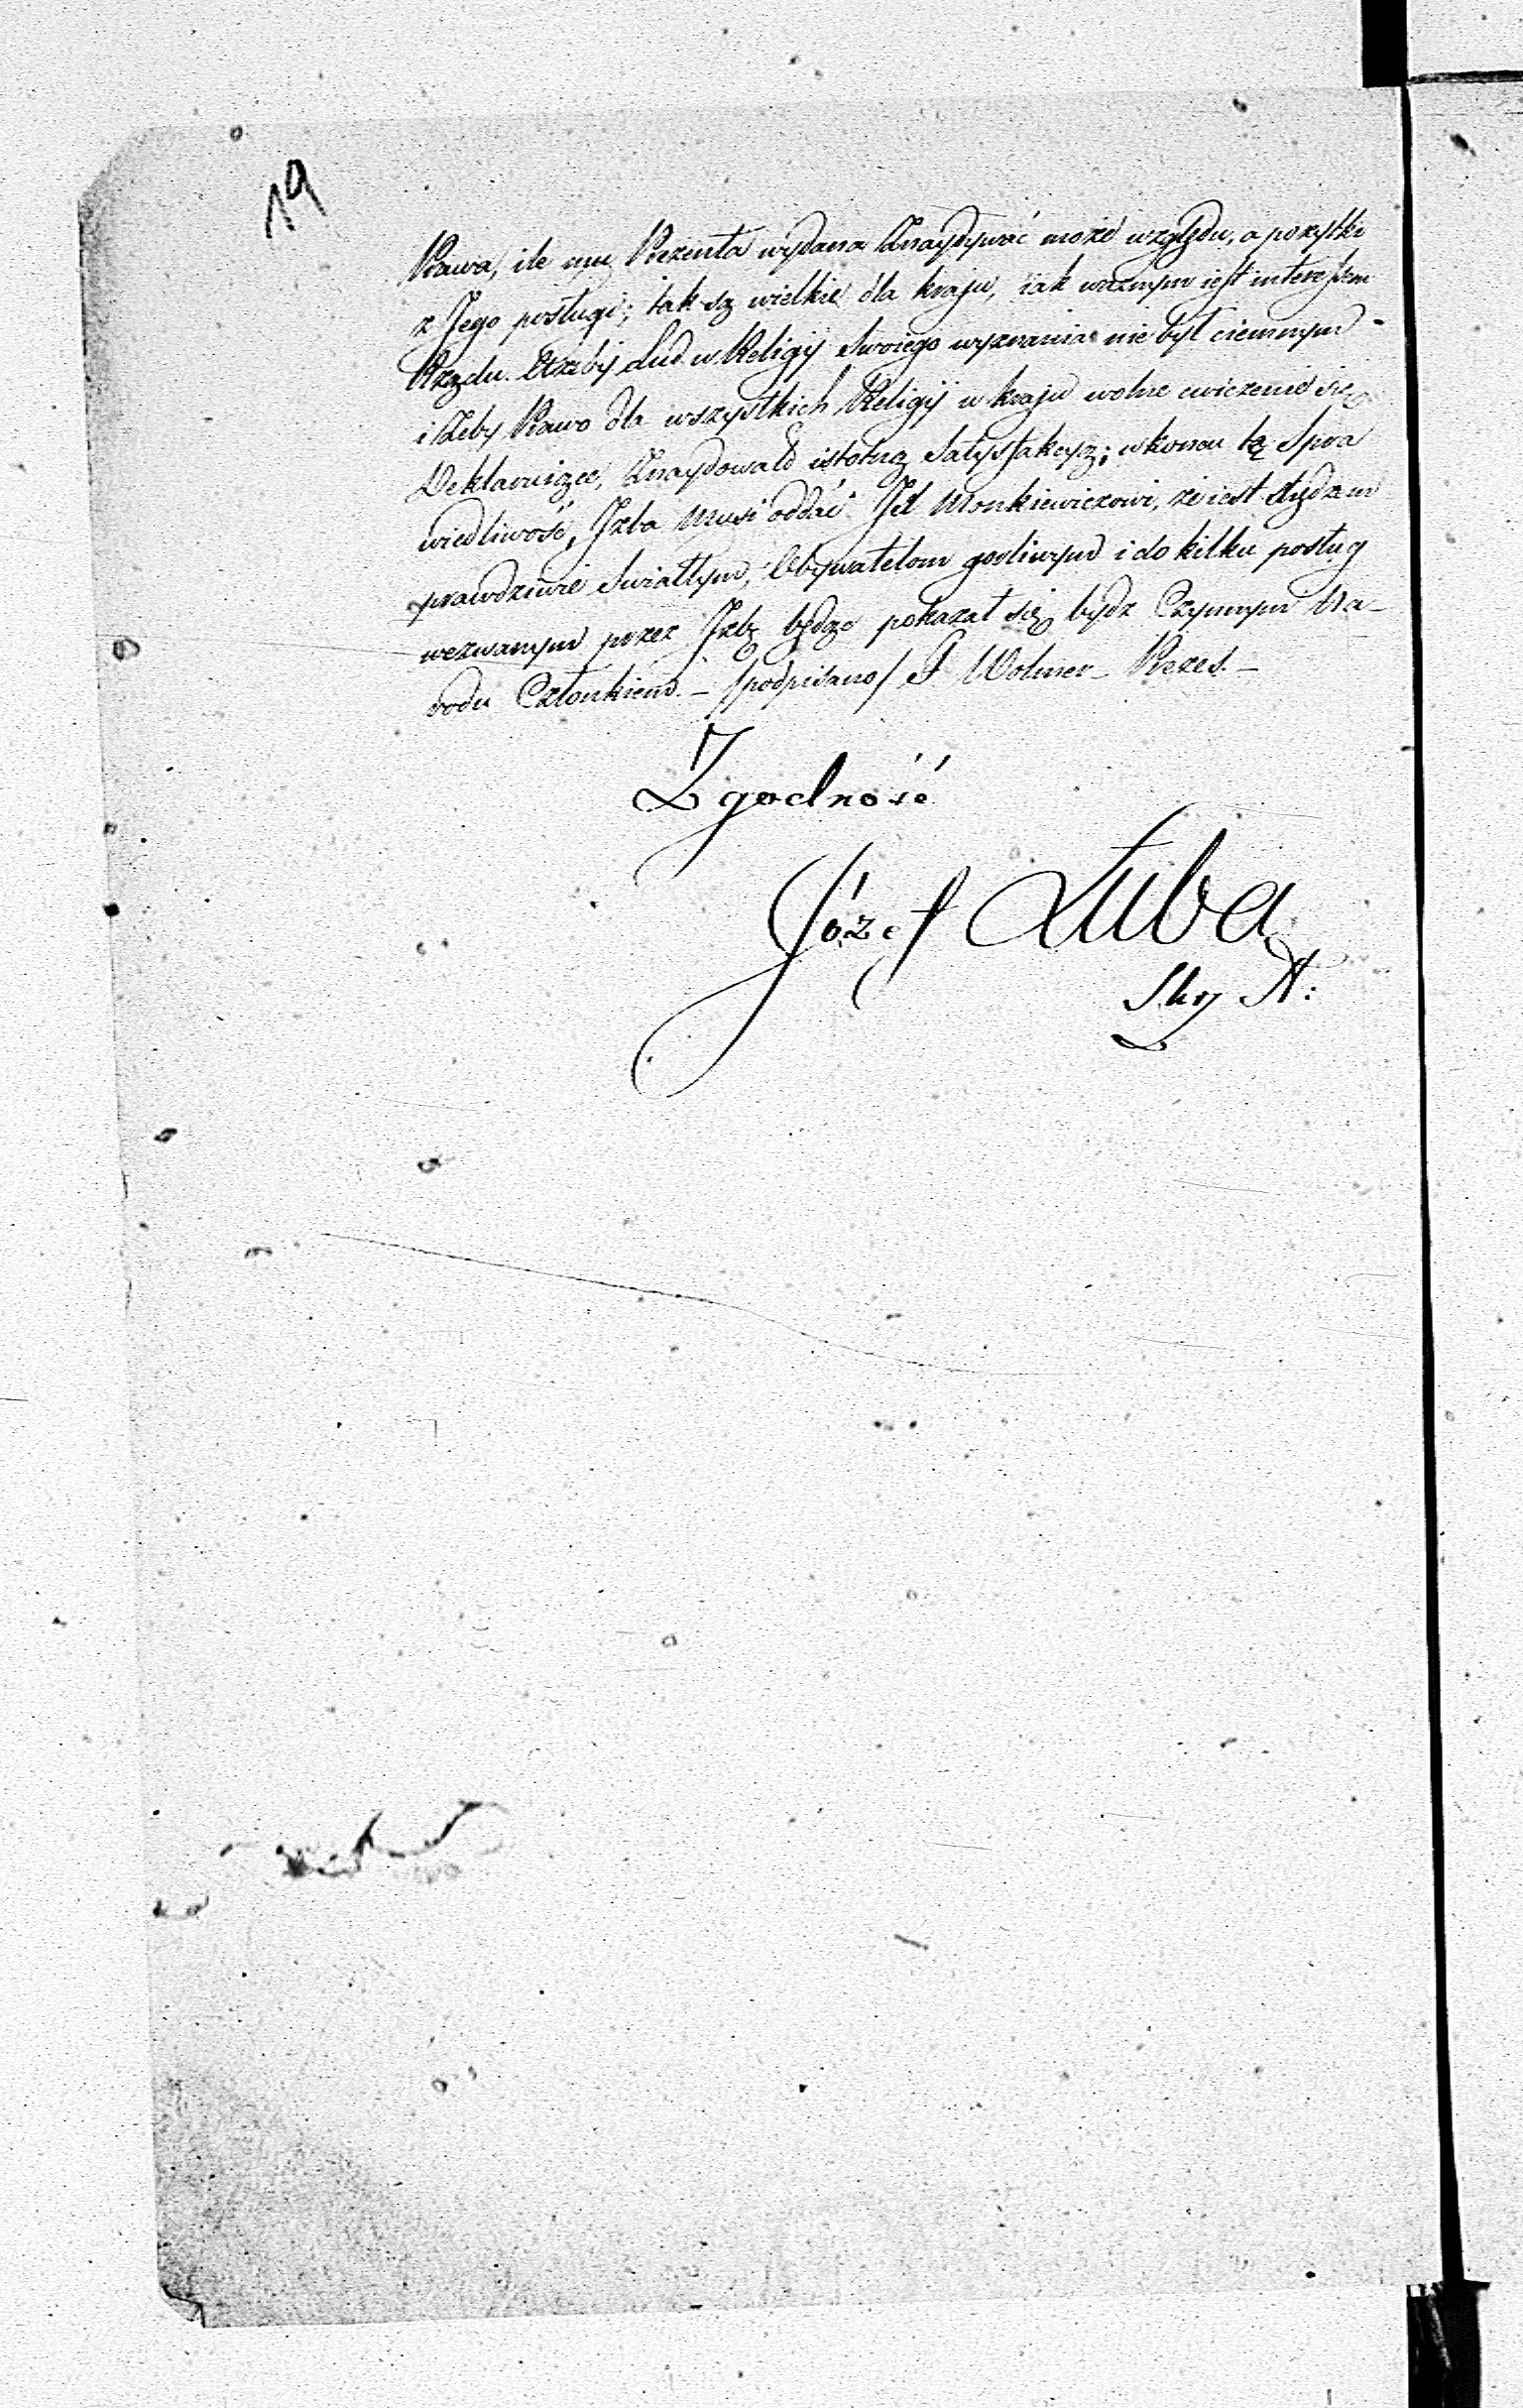 19
Prawa, ile mu Prezenta wydana Znaydywać może względu, a pożytki
z Jego posługi; tak są wielkie dla kraju, iak ważnym iest interessem
Rządu. Ażeby Lud w Religij Swoiego wyznania nie był ciemnym
i Żeby Prawo dla wszystkich Religij w kraju wolne cwiczenie się
Deklaruiące, Znaydowało istotną Satysfakcyą; w koncu tę Spra
wiedliwość, Jzba Musi oddać Jet Monkiewiczowi, że iest
prawdziwie Swiatłym, Obywatelom gorliwym i do kilku posług
wezwanym przez Jzbę będąc pokazał się bydz Czynnym Na-
rodu Członkiem. – /podpisano/ A Wolmer – Prezes. –
Zgodność
Józef Łuba